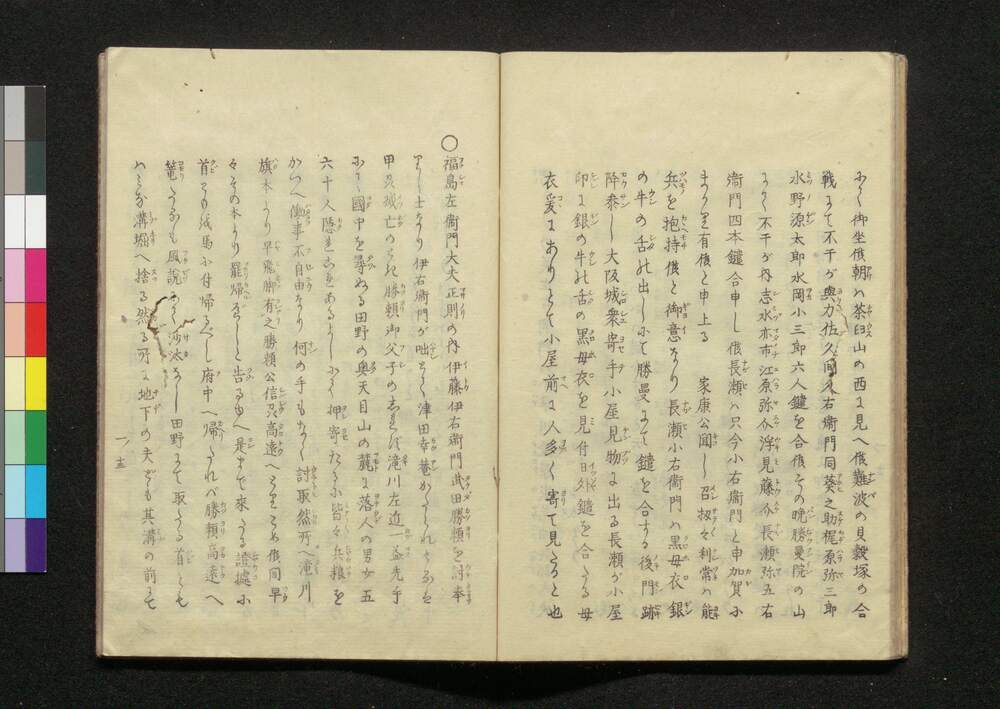 ふて御坐候朝ハ茶臼山の西ニ見へ候難波の貝殻塚の合
戦まて不干が與力佐久間久右衞門同葵之助梶原弥三郎
水野源太郎水岡小三郎六人鑓を合候その晩勝曼院の山
にて不干が内志水亦市江原弥介浮見藤介長瀬弥五右
衞門四本鑓合申し候長瀬ハ只今小右衞門と申加賀ふ
まかり有候と申上る 家康公聞し召扨々利常ハ能
兵を抱持候と御意なり長瀬小右衞門ハ黒母衣銀
の牛の舌の出しにて勝曼まて鑓を合する後門跡
降参し大阪城衆寄手小屋見物ニ出る長瀬が小屋
印ニ銀の牛の舌の黒母衣を見付日外鑓を合たる母
衣爰にありとて小屋前ニ人多く寄て見たると也
○福島左衞門大夫正則の内伊藤伊右衞門武田勝頼を討奉
りし士なり伊右衞門が咄とて津田幸菴かたられし
甲及滅亡のとき勝頼御父子の滝川左近一益先手
にて國中を尋ねる田野の奥天目山の麓に落人の男女五
六十人隠れあるよしにて押寄たるに皆々兵粮を
かつへ働事不自由なり何の手もなく討取然所へ滝川
旗本より早飛脚有之勝頼公信及高遠へ候間早
々その本より罷帰べしと告るゆへ是まて來りたる證據ふ
首ともを馬に付帰るべし府中へ帰りたれバ勝頼高遠へ
篭たるも風説にて沙汰なし田野まて取たる首とも
ハミな溝堀へ捨る然る所ニ地下の夫ども其溝の前まて
一ノ五